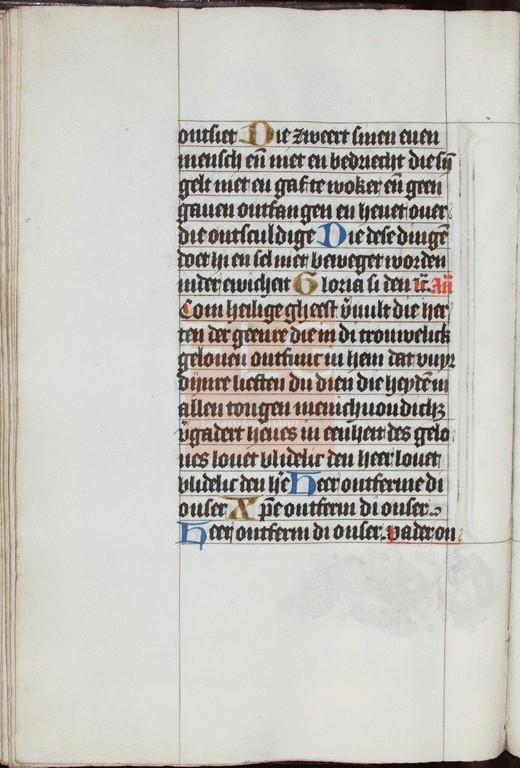 ontsiet Die zweert sinen euen
mensch eñ niet en bedriecht die sÿ
gelt niet en gaf te woker eñ geen
gauen ontfangen en heuet ouer
die onsculdige Die dese dingẽ
doet hi en sel niet beweget worden
inder ewicheit Gloria si den
Com heilige gheest v̄uult die her
ten der geenre die in di trouwelick
gelouen ontfunc in hem dat vuyr
dijnre lieften du dien die heydẽ in
allen tongen menichuoudich;
v̄gadert heues in eenheit des gelo
ues louet blidelic den heer louet
blidelic den h̄e Heer ontferme di
onser Xp̄e ontferm di onser
Heer ontferm di onser. vader on